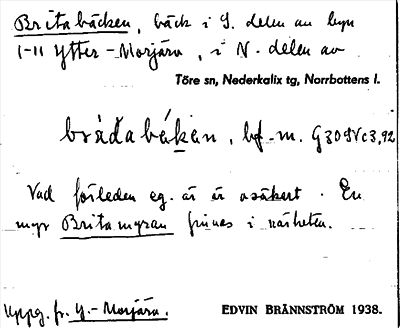 Britabäcken, bäck i S. delen av byn
1-11 Ytter-Morjärv, i N. delen av
Töre sn, Nederkalix tg, Norrbottens l.
bràdabákan, bf. m. G309Vc3,92
Vad förleden eg. är är osäkert. En
myr Britamyran finnes i närheten.
Uppg. fr. Y.-Morjärv.
EDVIN BRÄNNSTRÖM 1938.